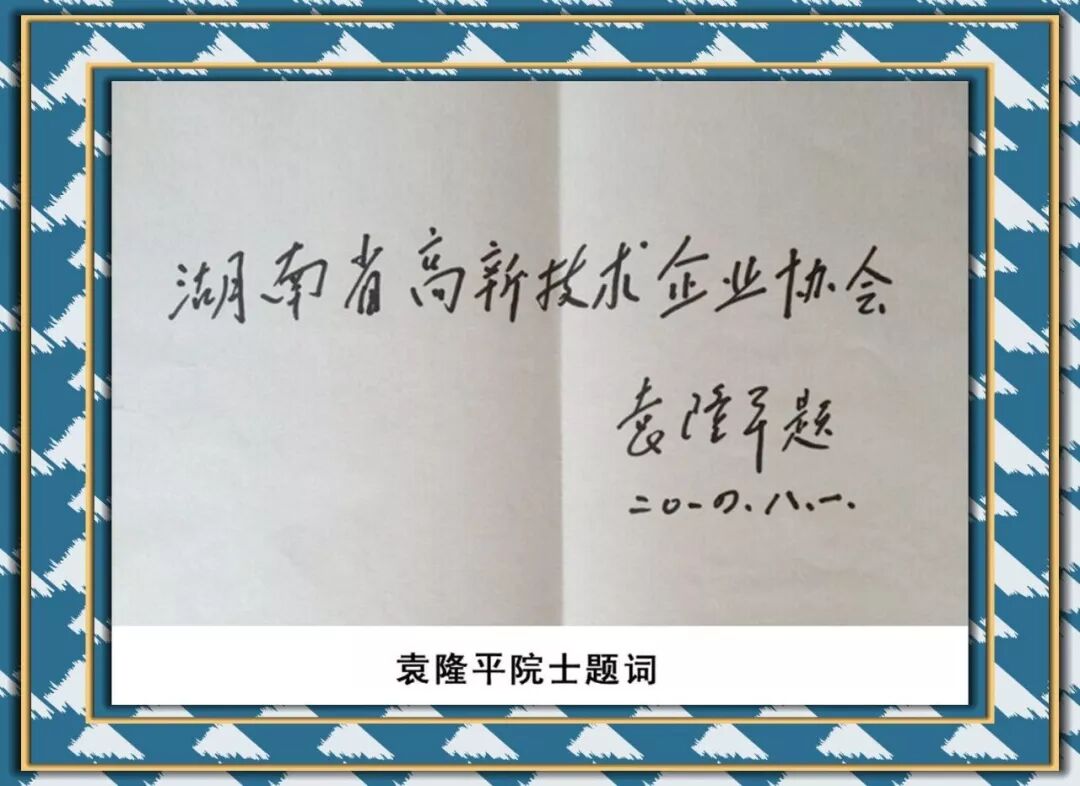 湖南省高新技术企业协会
袁隆平题
二〇一四.八.一.
袁隆平院士题词